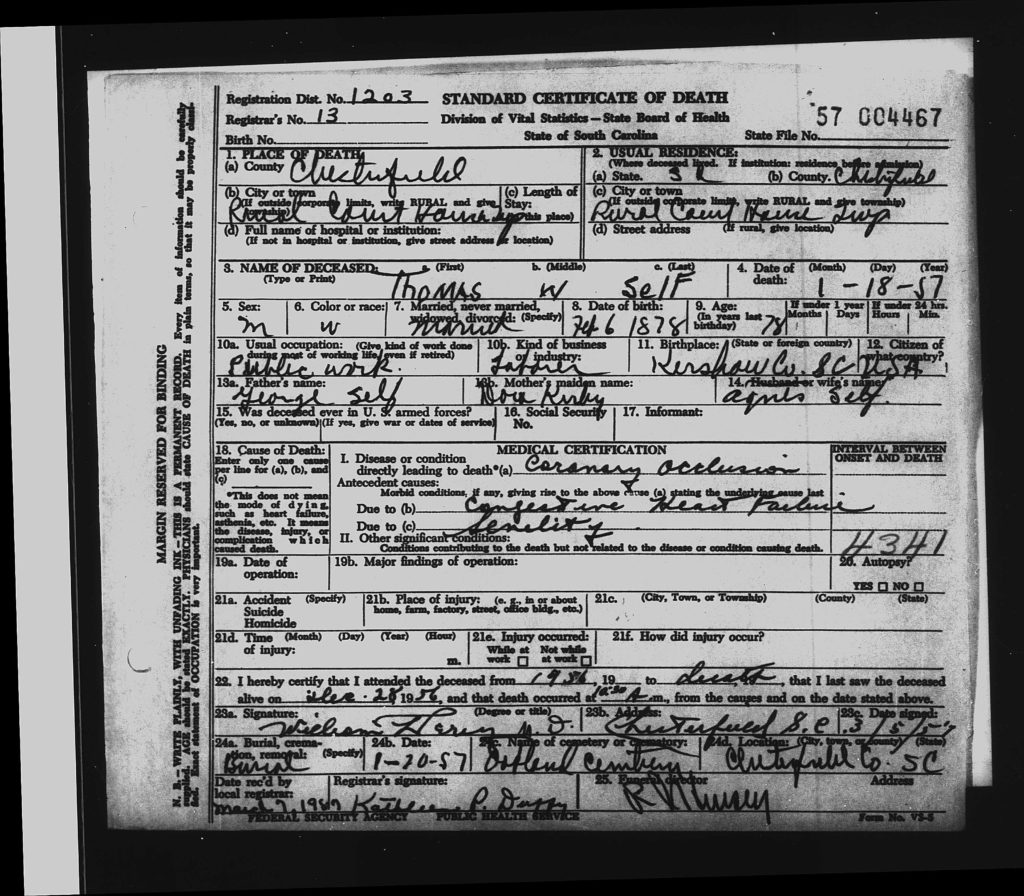 Registration Dist. No. 1203 STANDARD CERTIFICATE OF DEATH
Registrar's No. 13 Division of Vital Statistics — State Board of Health 57 004467
Birth No. State of South Carolina State File No.
1. PLACE OF DEATH: 2. USUAL RESIDENCE:
(a) County Chesterfield (Where deceased lived. If institution: residence before admission)
(a) State. S C (b) County. Chesterfield
(b) City or town (c) Length of Stay: (c) City or town
(If outside corporate limits, write RURAL and give township) (in this place) (If outside corporate limits, write RURAL and give township)
Rural Court House Rural Court House Twp
(d) Full name of hospital or institution: (d) Street address (If rural, give location)
(If not in hospital or institution, give street address or location)
3. NAME OF DECEASED: a. (First) b. (Middle) c. (Last) 4. Date of death: (Month) (Day) (Year)
(Type or Print) Thomas W Self 1-18-57
5. Sex: 6. Color or race: 7. Married, never married, widowed, divorced: (Specify) 8. Date of birth: 9. Age: (In years last birthday) If under 1 year Months Days If under 24 hrs. Hours Min.
M W Married Feb 6 1878 78
10a. Usual occupation: (Give kind of work done during most of working life, even if retired) 10b. Kind of business or industry: 11. Birthplace: (State or foreign country) 12. Citizen of what country?
Public work. Laborer Kershaw Co. S C USA
13a. Father's name: 13b. Mother's maiden name: 14. Husband or wife's name
George Self Dora Kirby Agnes Self
15. Was deceased ever in U. S. armed forces? 16. Social Security No. 17. Informant:
(Yes, no, or unknown) (If yes, give war or dates of service)
18. Cause of Death: MEDICAL CERTIFICATION INTERVAL BETWEEN ONSET AND DEATH
Enter only one cause per line for (a), (b), and (c)
I. Disease or condition
directly leading to death*(a) Coronary Occlusion
Antecedent causes:
Morbid conditions, if any, giving rise to the above cause (a) stating the underlying cause last
*This does not mean the mode of dying, such as heart failure, asthenia, etc. It means the disease, injury, or complication which caused death.
Due to (b) Congestive Heart Failure
Due to (c) Senility
II. Other significant conditions:
Conditions contributing to the death but not related to the disease or condition causing death. 4341
19a. Date of operation: 19b. Major findings of operation: 20. Autopsy?
YES NO
21a. Accident Suicide Homicide (Specify) 21b. Place of injury: (e. g., in or about home, farm, factory, street, office bldg., etc.) 21c. (City, Town, or Township) (County) (State)
21d. Time of injury: (Month) (Day) (Year) (Hour) m. 21e. Injury occurred: While at work Not while at work 21f. How did injury occur?
22. I hereby certify that I attended the deceased from 1956, 19 to death, that I last saw the deceased
alive on Dec - 28 1956, and that death occurred at A m., from the causes and on the date stated above.
23a. Signature: (Degree or title) 23b. Address: 23c. Date signed:
William M. D. Chesterfield S. C. 3/5/57
24a. Burial, cremation, removal: (Specify) 24b. Date: 24c. Name of cemetery or crematory: 24d. Location: (City, town, or county) (State)
Burial 1-20-57 Cemetery Chesterfield Co. SC
Date rec'd by local registrar: Registrar's signature: 25. Funeral director Address
March 7, 1957 Kathleen P. Duffy
FEDERAL SECURITY AGENCY PUBLIC HEALTH SERVICE Form No. VS-5
MARGIN RESERVED FOR BINDING
N. B. — WRITE PLAINLY, WITH UNFADING INK — THIS IS A PERMANENT RECORD. Every item of information should be carefully
supplied. AGE should be stated EXACTLY. PHYSICIANS should state CAUSE OF DEATH in plain terms, so that it may be properly classified. Exact statement of OCCUPATION is very important.